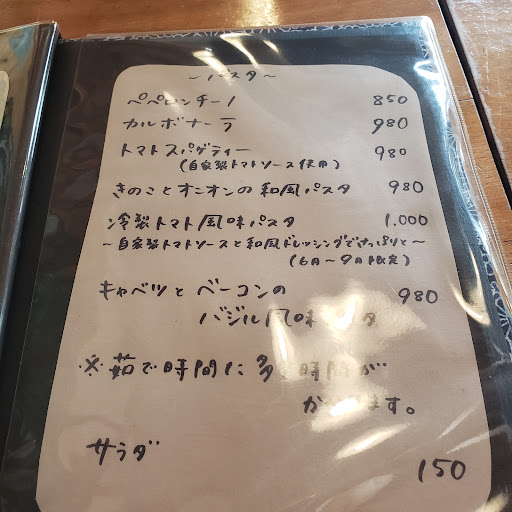 ～パスタ～
ペペロンチーノ 850
カルボナーラ 980
トマトスパゲティー 980
(自家製トマトソース使用)
きのことオニオンの和風パスタ 980
冷製トマト風味パスタ 1,000
～自家製トマトソースと和風ドレッシングでさっぱりと～
(6月～9月限定)
キャベツとベーコンの 980
バジル風味 タ
※茹で時間に多 時間が
か ます。
サラダ
150